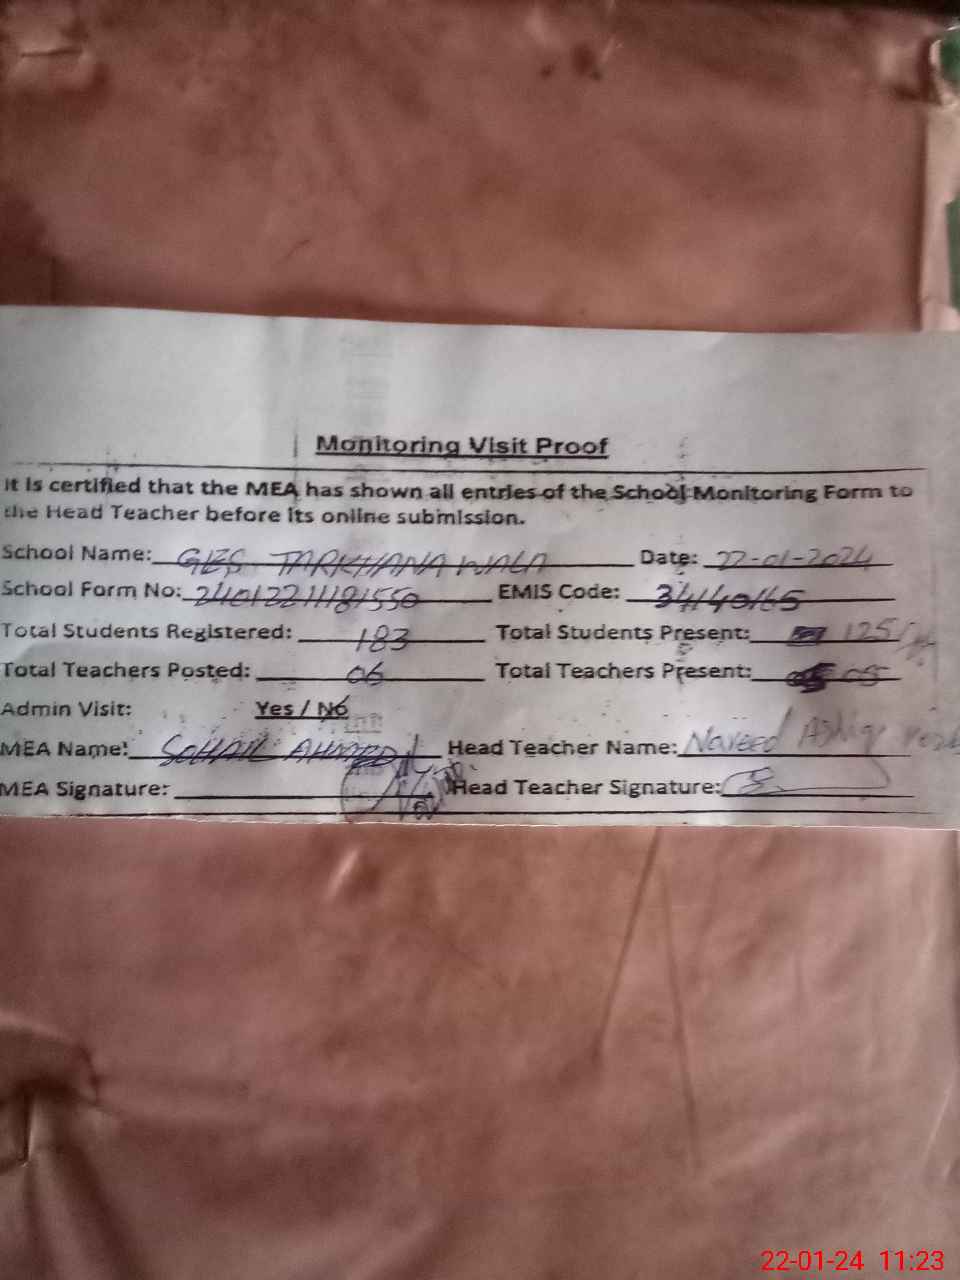 Monitoring Visit Proof
It is certified that the MEA has shown all entries of the School Monitoring Form to
the Head Teacher before its online submission.
School Name: GES TARKHANA WALA Date: 22-01-2024
School Form No: 24012211181550 EMIS Code: 34140165
Total Students Registered: 183 Total Students Present: 125
Total Teachers Posted: 06 Total Teachers Present: 05
Admin Visit: Yes / No
MEA Name: SOHAIL AHMED Head Teacher Name: Naveed Ashiq
MEA Signature: Head Teacher Signature:
22-01-24 11:23